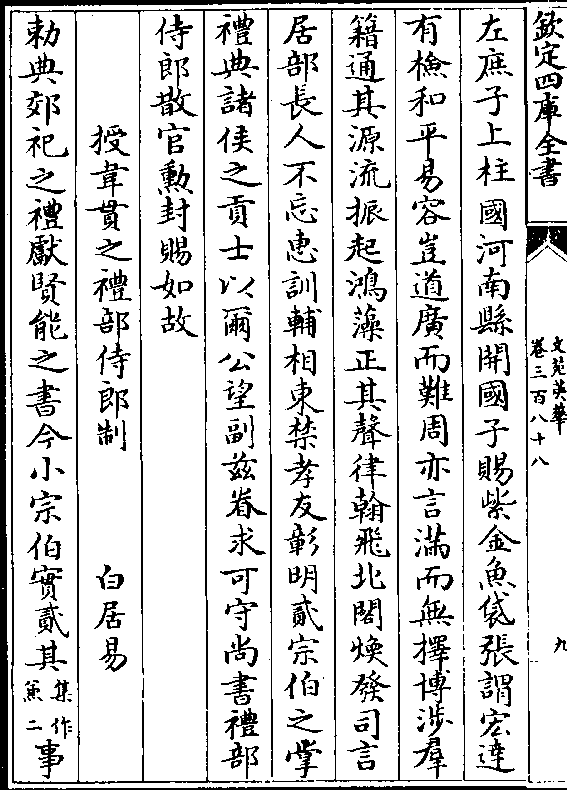 欽定四庫全書
文苑英華
卷三百八十八
九
左庶子上柱國河南縣開國子賜紫金魚袋張謂宏達
有檢和平易容豈道廣而難周亦言滿而無擇博涉羣
籍通其源流振起鴻藻正其聲律翰飛北閣煥發司言
居部長人不忘惠訓輔相東禁孝友彰明貳宗伯之掌
禮典諸侯之貢士以爾公望副兹眷求可守尚書禮部
侍郎散官勲封賜如故
授韋貫之禮部侍郎制 白居易
勅典郊祀之禮獻賢能之書今小宗伯實貳其集作兼二事